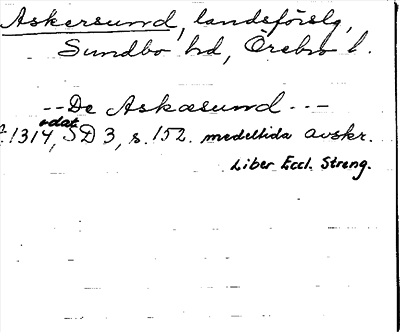 Askersund, landsförslg,
Sundbo hd, Örebro l.
-- De Askæsund ---
odat
1314, SD 3, s. 152. medeltida avskr.
Liber Eccl. Streng.